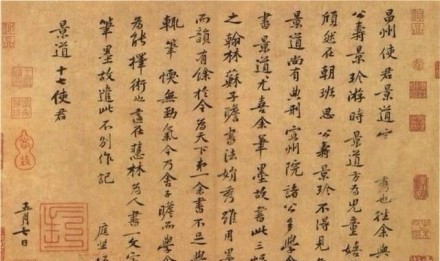 昌州使君景道宗秀也往余與
公壽景珍游時景道方為兒童嬉
頎然在朝班思公壽景珍不得見
景道尚有典刑宣州院諸公多學余
書景道尤喜余筆墨故書此三幅
之翰林蘇子瞻書法娟秀雖用墨
而韻有餘於今為天下第一余書不足學
輒筆愞無勁氣今乃舍子瞻而學余
為能擇術也適在慧林為人書一文字
筆墨故遣此不別作記
庭堅
景道十七使君
五月七日